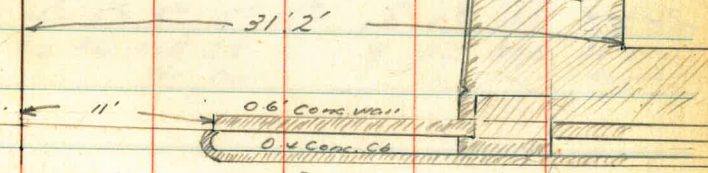 31'.2'
11'
0.6' Conc. wall
0.4 Conc. Cb